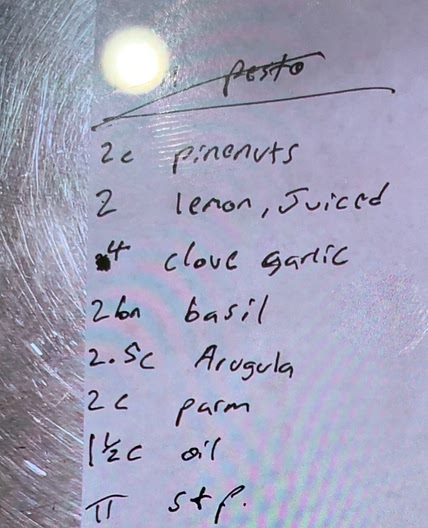 pesto
2c pinenuts
2 lemon, Juiced
4 clove garlic
2bn basil
2.5c Arugula
2c parm
1½c oil
π s+p.